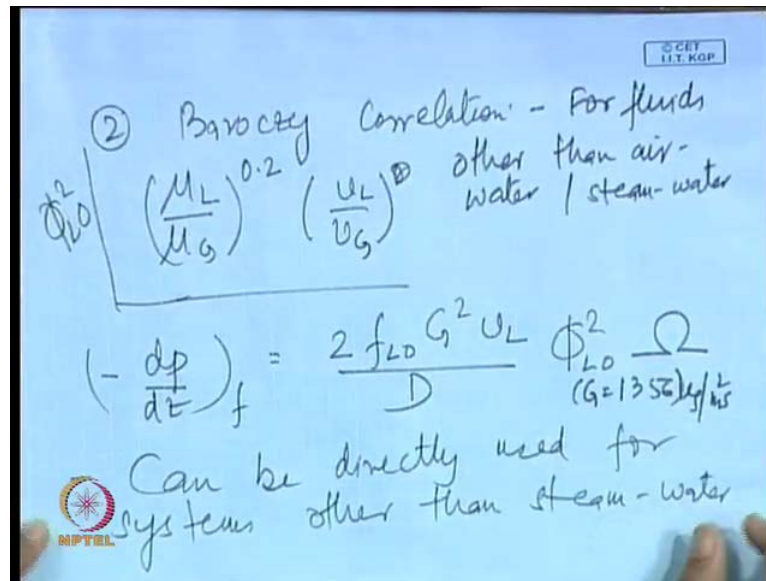 © CET
I.I.T. KGP
② Baroczy Correlation - For fluids
other than air-
water / steam-water
Φ²_LO (μ_L/μ_G)^0.2 (υ_L/υ_G)
(- dp/dz)_f = 2 f_LO G² υ_L / D Φ²_LO Ω
(G=1356) kg/m²s
Can be directly used for
systems other than steam-water
NPTEL